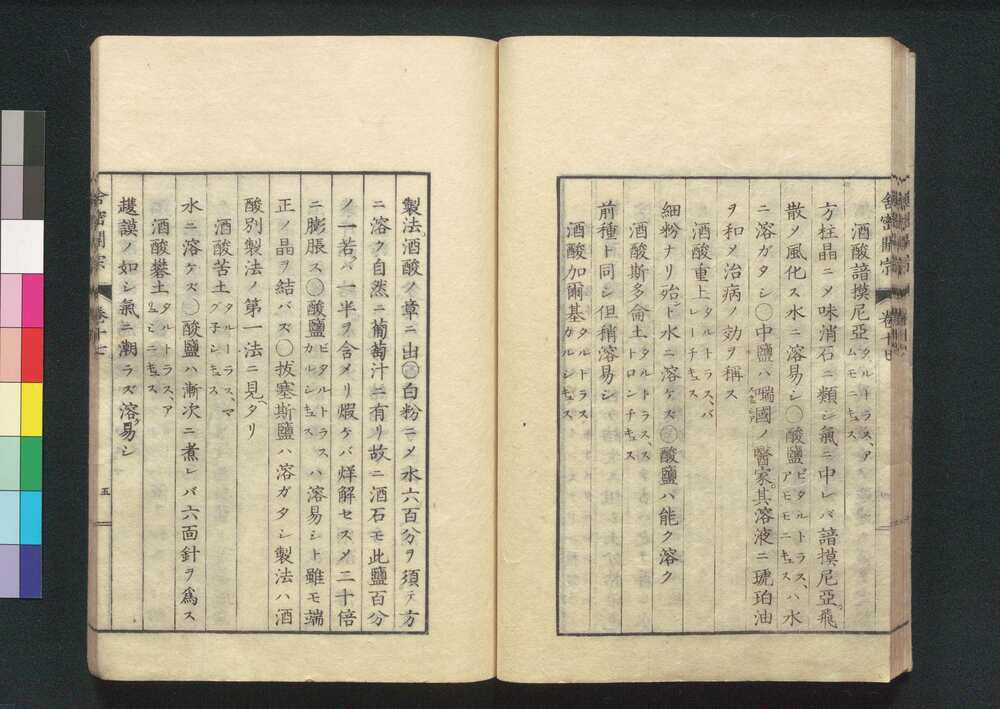 酒酸諳摸尼亞タルトラス、アムモニキュス
方柱晶ニメ味消石ニ類シ氣ニ中レバ諳摸尼亞飛
散メ風化ス水ニ溶易シ〇酸鹽ビタルトラス、アモモニキュスハ水
ニ溶ガタシ〇中鹽ハ喘國ノ醫家其溶液ニ琥珀油
ヲ和メ治病ノ効ヲ稱ス
酒酸重土タルトラス、バレーチキュス
細粉ナリ殆ド水ニ溶ケズ〇酸鹽ハ能ク溶ク
酒酸斯多侖土タルトラス、ストロンチキュス
前種ト同シ但稍溶易シ
酒酸加爾基タルトラス、カルシキュス
舎密開宗
製法酒酸ノ章ニ出〇白粉ニメ水六百分ヲ須テ方
ニ溶ク自然ニ葡萄汁ニ有リ故ニ酒石モ此鹽百分
ノ一若バ一半ヲ含メリ煆ケバ烊解セスメ二十倍
ニ膨脹ス〇酸鹽ビタルトラスカルシキュスハ溶易シト雖モ端
正ノ晶ヲ結バズ〇拔塞斯鹽ハ溶ガタシ製法ハ酒
酸別製法ノ第一法ニ見タリ
酒酸苦土タルーラス、マグ子シキュス
水ニ溶ケズ〇酸鹽ハ漸次ニ煮レバ六面針ヲ爲ス
酒酸礬土タルトラス、アリュミニキュス
護謨ノ如シ氣ニ潮ラズ溶易シ
舎密開宗 卷十七 五